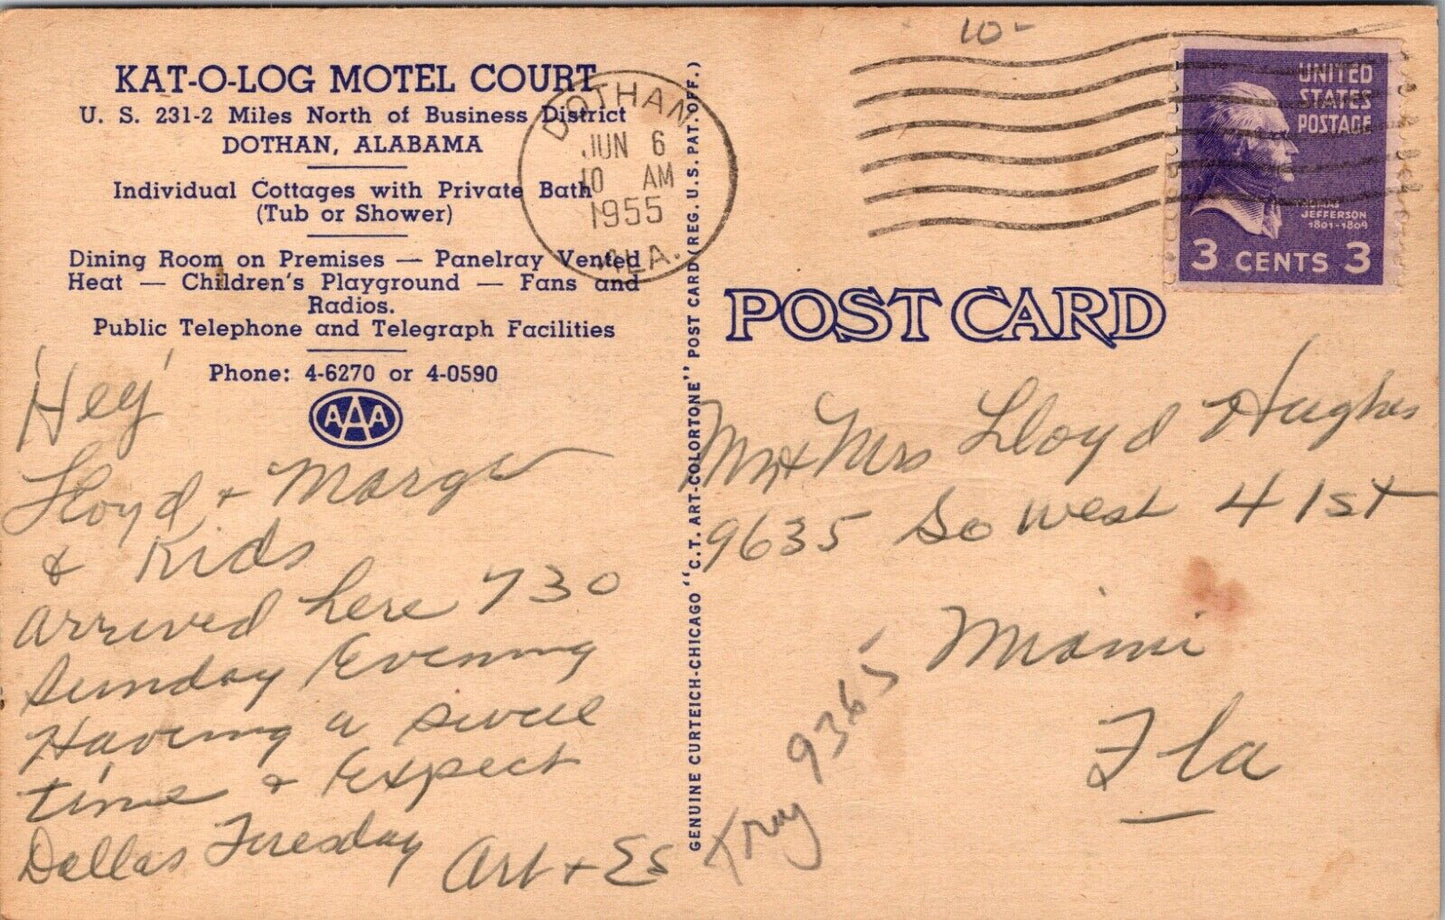 KAT-O-LOG MOTEL COURT
U. S. 231-2 Miles North of Business District
DOTHAN, ALABAMA
Individual Cottages with Private Bath
(Tub or Shower)
Dining Room on Premises — Panelray Vented
Heat — Children's Playground — Fans and
Radios.
Public Telephone and Telegraph Facilities
Phone: 4-6270 or 4-0590
AAA
'Hey'
Floyd + Marge
& Kids
arrived here 730
Sunday Evening
Having a
time & Expect
Dallas Tuesday
Art + Es
GENUINE CURTEICH-CHICAGO "C.T. ART-COLORTONE" POST CARD (REG. U. S. PAT. OFF.)
DOTHAN
JUN 6
10 AM
1955
ALA.
10-
UNITED
STATES
POSTAGE
THOMAS
JEFFERSON
1801-1809
3 CENTS 3
POST CARD
Mr & Mrs Lloyd Hughes
9635 So West 41st
Miami
Fla
try 9365